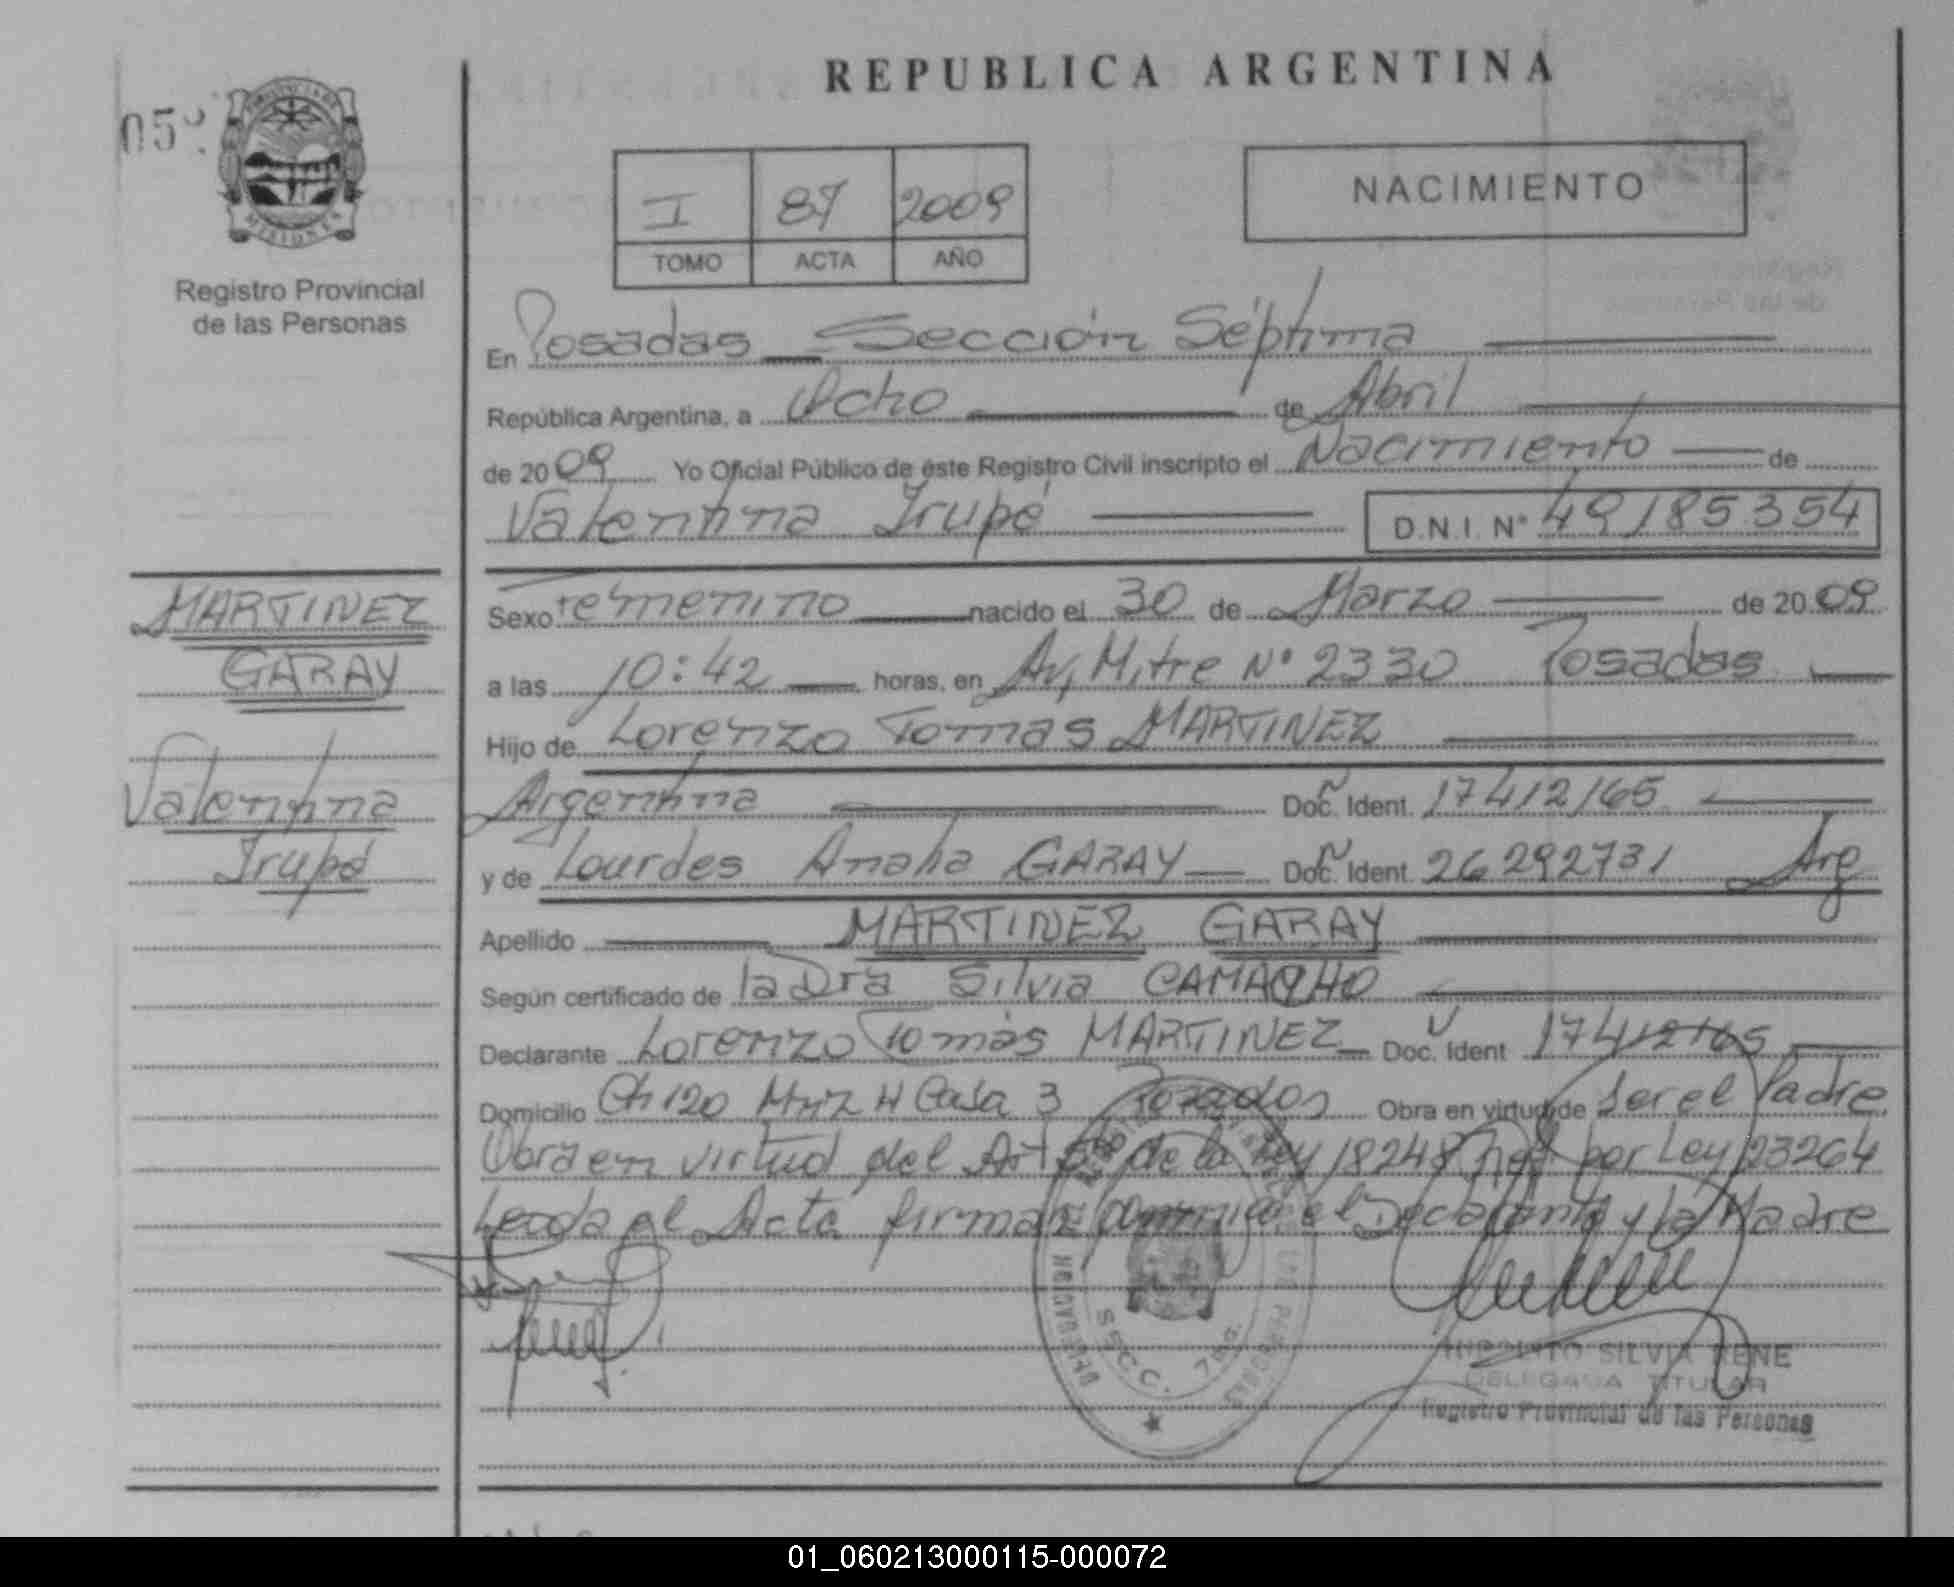 REPUBLICA ARGENTINA
05
MISIONES
Registro Provincial
de las Personas
I 87 2009
TOMO ACTA AÑO
NACIMIENTO
En Posadas Sección Séptima
República Argentina, a Ocho de Abril
de 2009 Yo Oficial Público de éste Registro Civil inscripto el Nacimiento de
Valentina Irupé D.N.I. N° 49185354
MARTINEZ
GARAY
Valentina
Irupé
Sexo Femenino nacido el 30 de Marzo de 2009
a las 10:42 horas, en Av, Mitre N° 2330 Posadas
Hijo de Lorenzo Tomas MARTINEZ
Argentina Doc. Ident. 17412165
y de Lourdes Analia GARAY Doc. Ident. 26292731 Arg
Apellido MARTINEZ GARAY
Según certificado de la Dra Silvia CAMACHO
Declarante Lorenzo Tomás MARTINEZ Doc. Ident 17412165
Domicilio Ch 120 Mz H Casa 3 Posadas Obra en virtud de ser el Padre
Obra en virtud del Art de la Ley 18248 por Ley 23264
Leida el Acta firman conmigo el Declarante y la Madre
S.S.C.C. 7
GOBERNACION
SILVIA RENE
DELEGADA TITULAR
Registro Provincial de las Personas
01_060213000115-000072